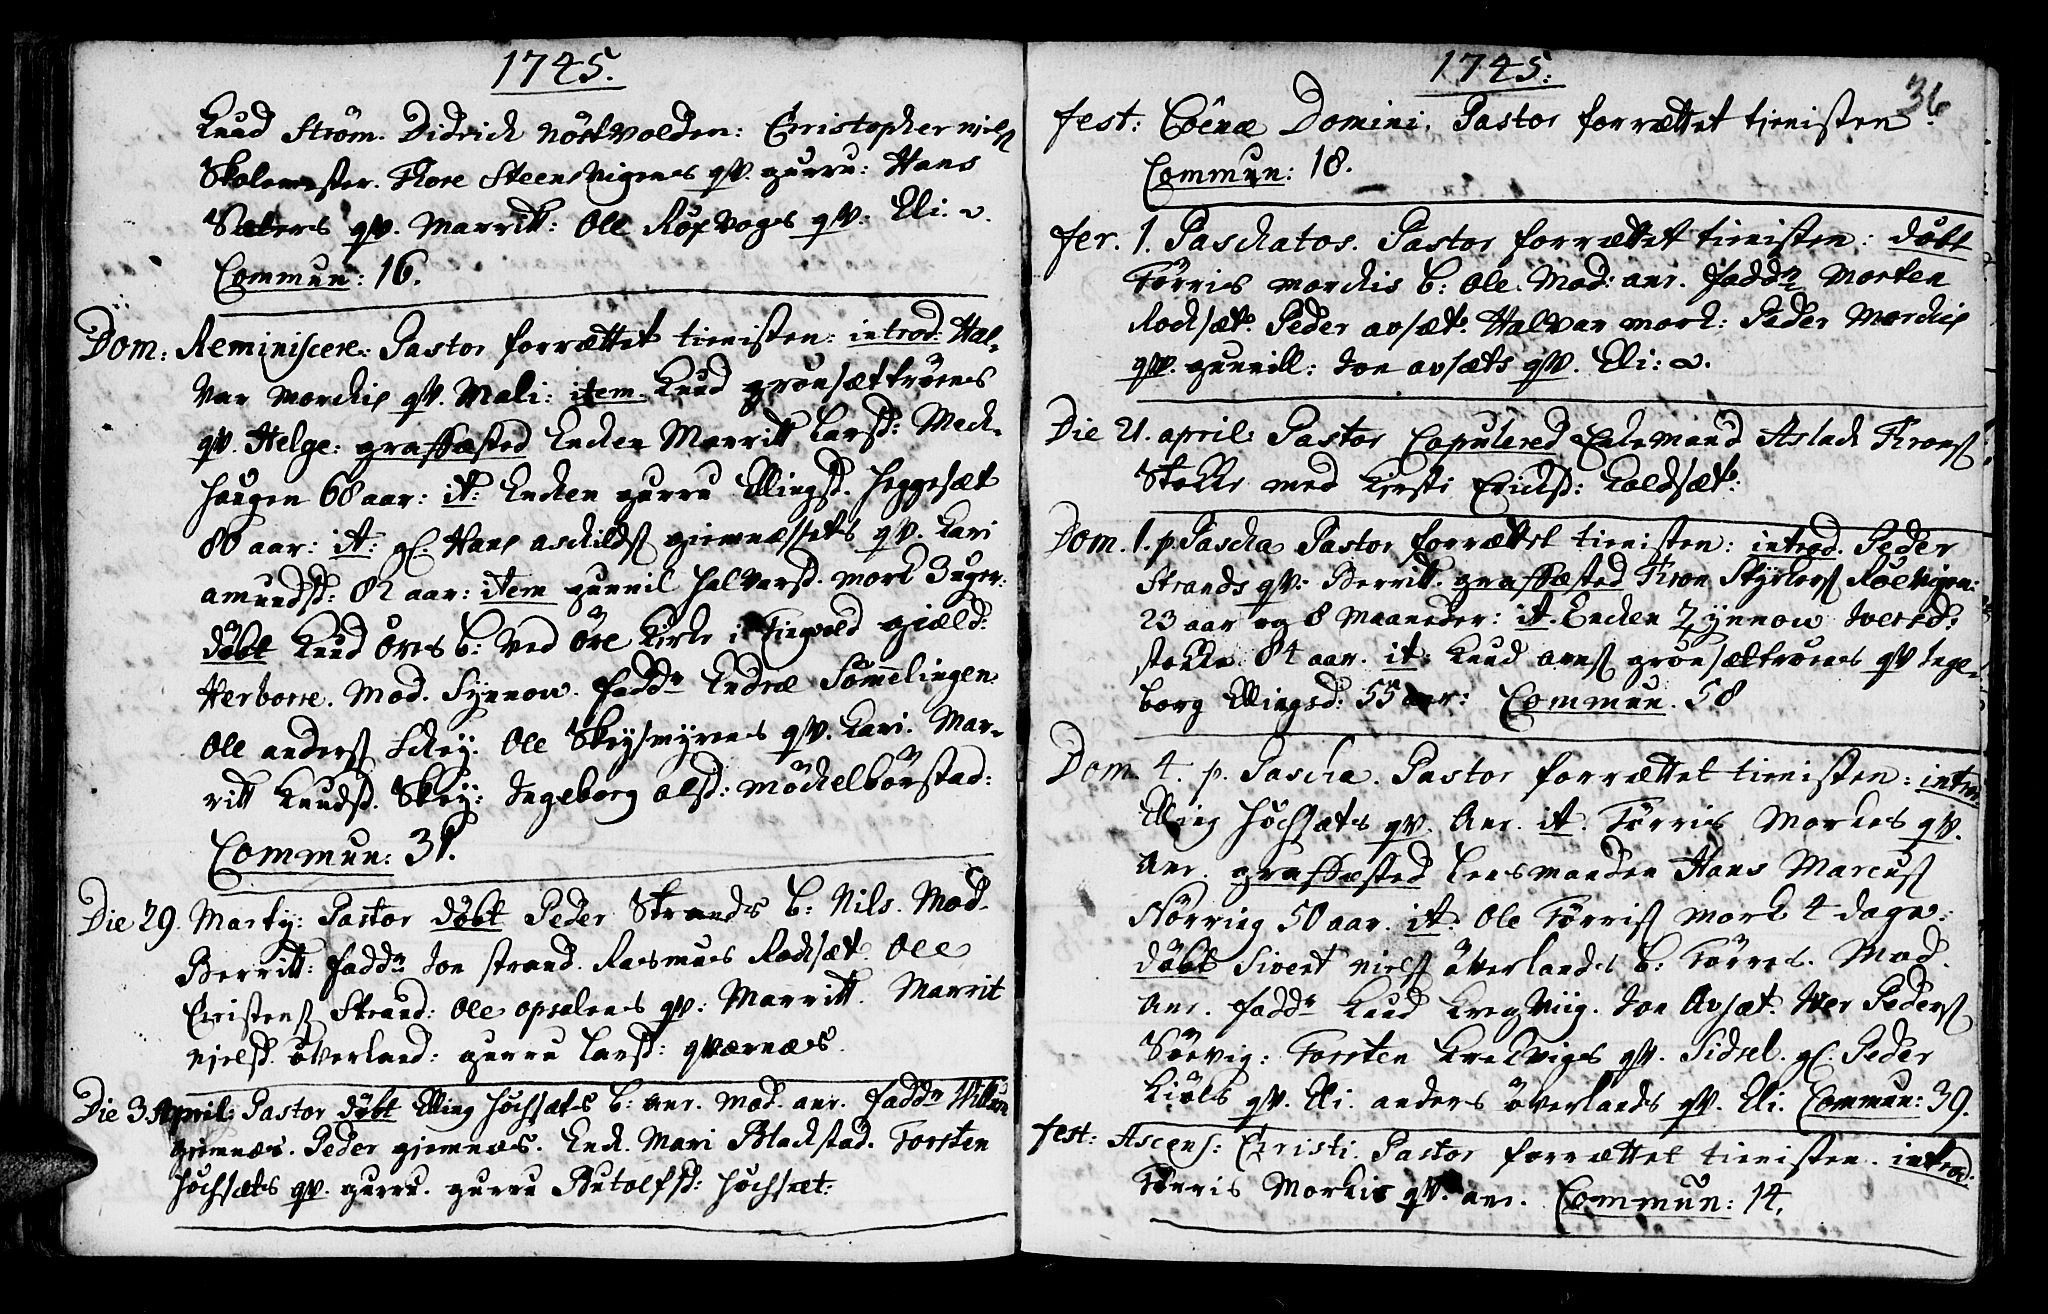 1745.
Knud Strøm. Didrich Nöstvolden: Christopher Niels
Skolemester. Thore Steensvigenes qv. gurru: Hans
Sæters qv. Marritt: Ole Røsvogs qv. Eli.
Commun: 16.
Dom: Reminiscere: Pastor forrættet tienisten: introd: Hal-
var Morchis qv. Mali: item Knud grönsættrøenes
qv. Helge: graffæsted Enchen Marritt Larsd: Mech-
haugen 68 aar: it: Enchen gurru Ellingsd. Heggesæt
80 aar: it: gl. Hans aschilds giemnæssets qv. Kari
amundsd: 82 aar: item gunnil Halvarsd. Mork 3 uger:
döbt Knud Öres b: ved Öre Kirke i Tingvold gield:
Herborre. Mod. Synnow. fadd Endræ Sömmelingen
Ole anders Schey. Ole Skeysmyrenes qv. Kari. Mar-
ritt Knudsd. Skey: Ingeborg olsd: Möchelbörstad:
Commun: 31.
Die 29. Marty: Pastor döbt Peder Strands b: Nils. Mod.
Berritt: fadd Jon Strand. Rasmus Rodsæt. Ole
Christens Strand: Ole opsalenes qv: Marritt. Marrit
Nielsd. överland: gurru Larsd: qværnæs.
Die 3 April: Pastor döbt Elling Höchsæts b: anr. mod. anr. fadd Willum
giemnæs. Peder giemnæs. Ench. Mari Blachstad. Torsten
Höchsæts qv. gurru. gurru Butolfsd: Höchsæt:
1745:
36
fest: Coenæ Domini. Pastor forrættet tienisten.
Commun: 18.
fer. 1. Paschatos. Pastor forrættet tienisten: döbt
Törris Morchis b: Ole. Mod: anr. fadd Morten
Rodsæt. Peder avsæt. Halvar Mork: Peder Morchis
qv. gunnill: Jon avsæts qv. Eli:
Die 21. april: Pastor Copulered Enkemand Aslach Trons
Stokke med Kirsti Erichsd: Koldsæt:
Dom. 1. p. Pascha Pastor forrættet tienisten: introd. Peder
Strands qv: Berritt. graffæsted Tron Styrkers Röevigen:
23 aar og 8 Maaneder: it. Enchen Zynnow Iversd:
stokke 84 aar. it: Knud arns grönsættrøenes qv Inge-
borg Ellingsd: 55 aar: Commun. 58
Dom. 4. p. Pascha. Pastor forrættet tienisten: introd
Elling Höchsæts qv. Anr. it. Törris Morkes qv.
Anr. graffæsted Lensmanden Hans Marcus
Nörring 50 aar. it. Ole Törris Mork 4 dage:
döbt Sivert niels överlands b: Törres. Mod.
Anr. fadd Knud Kragviig. Jon Avsæt. Iver Peders
Sörvig: Torsten Krekvigs qv. Sidsel. gl. Peder
Kiöls qv. Eli. anders överlands qv. Eli. Commun: 39.
fest: Ascens: Christi. Pastor forrættet tienisten. introd:
Törris Morkis qv. anr. Commun: 14.